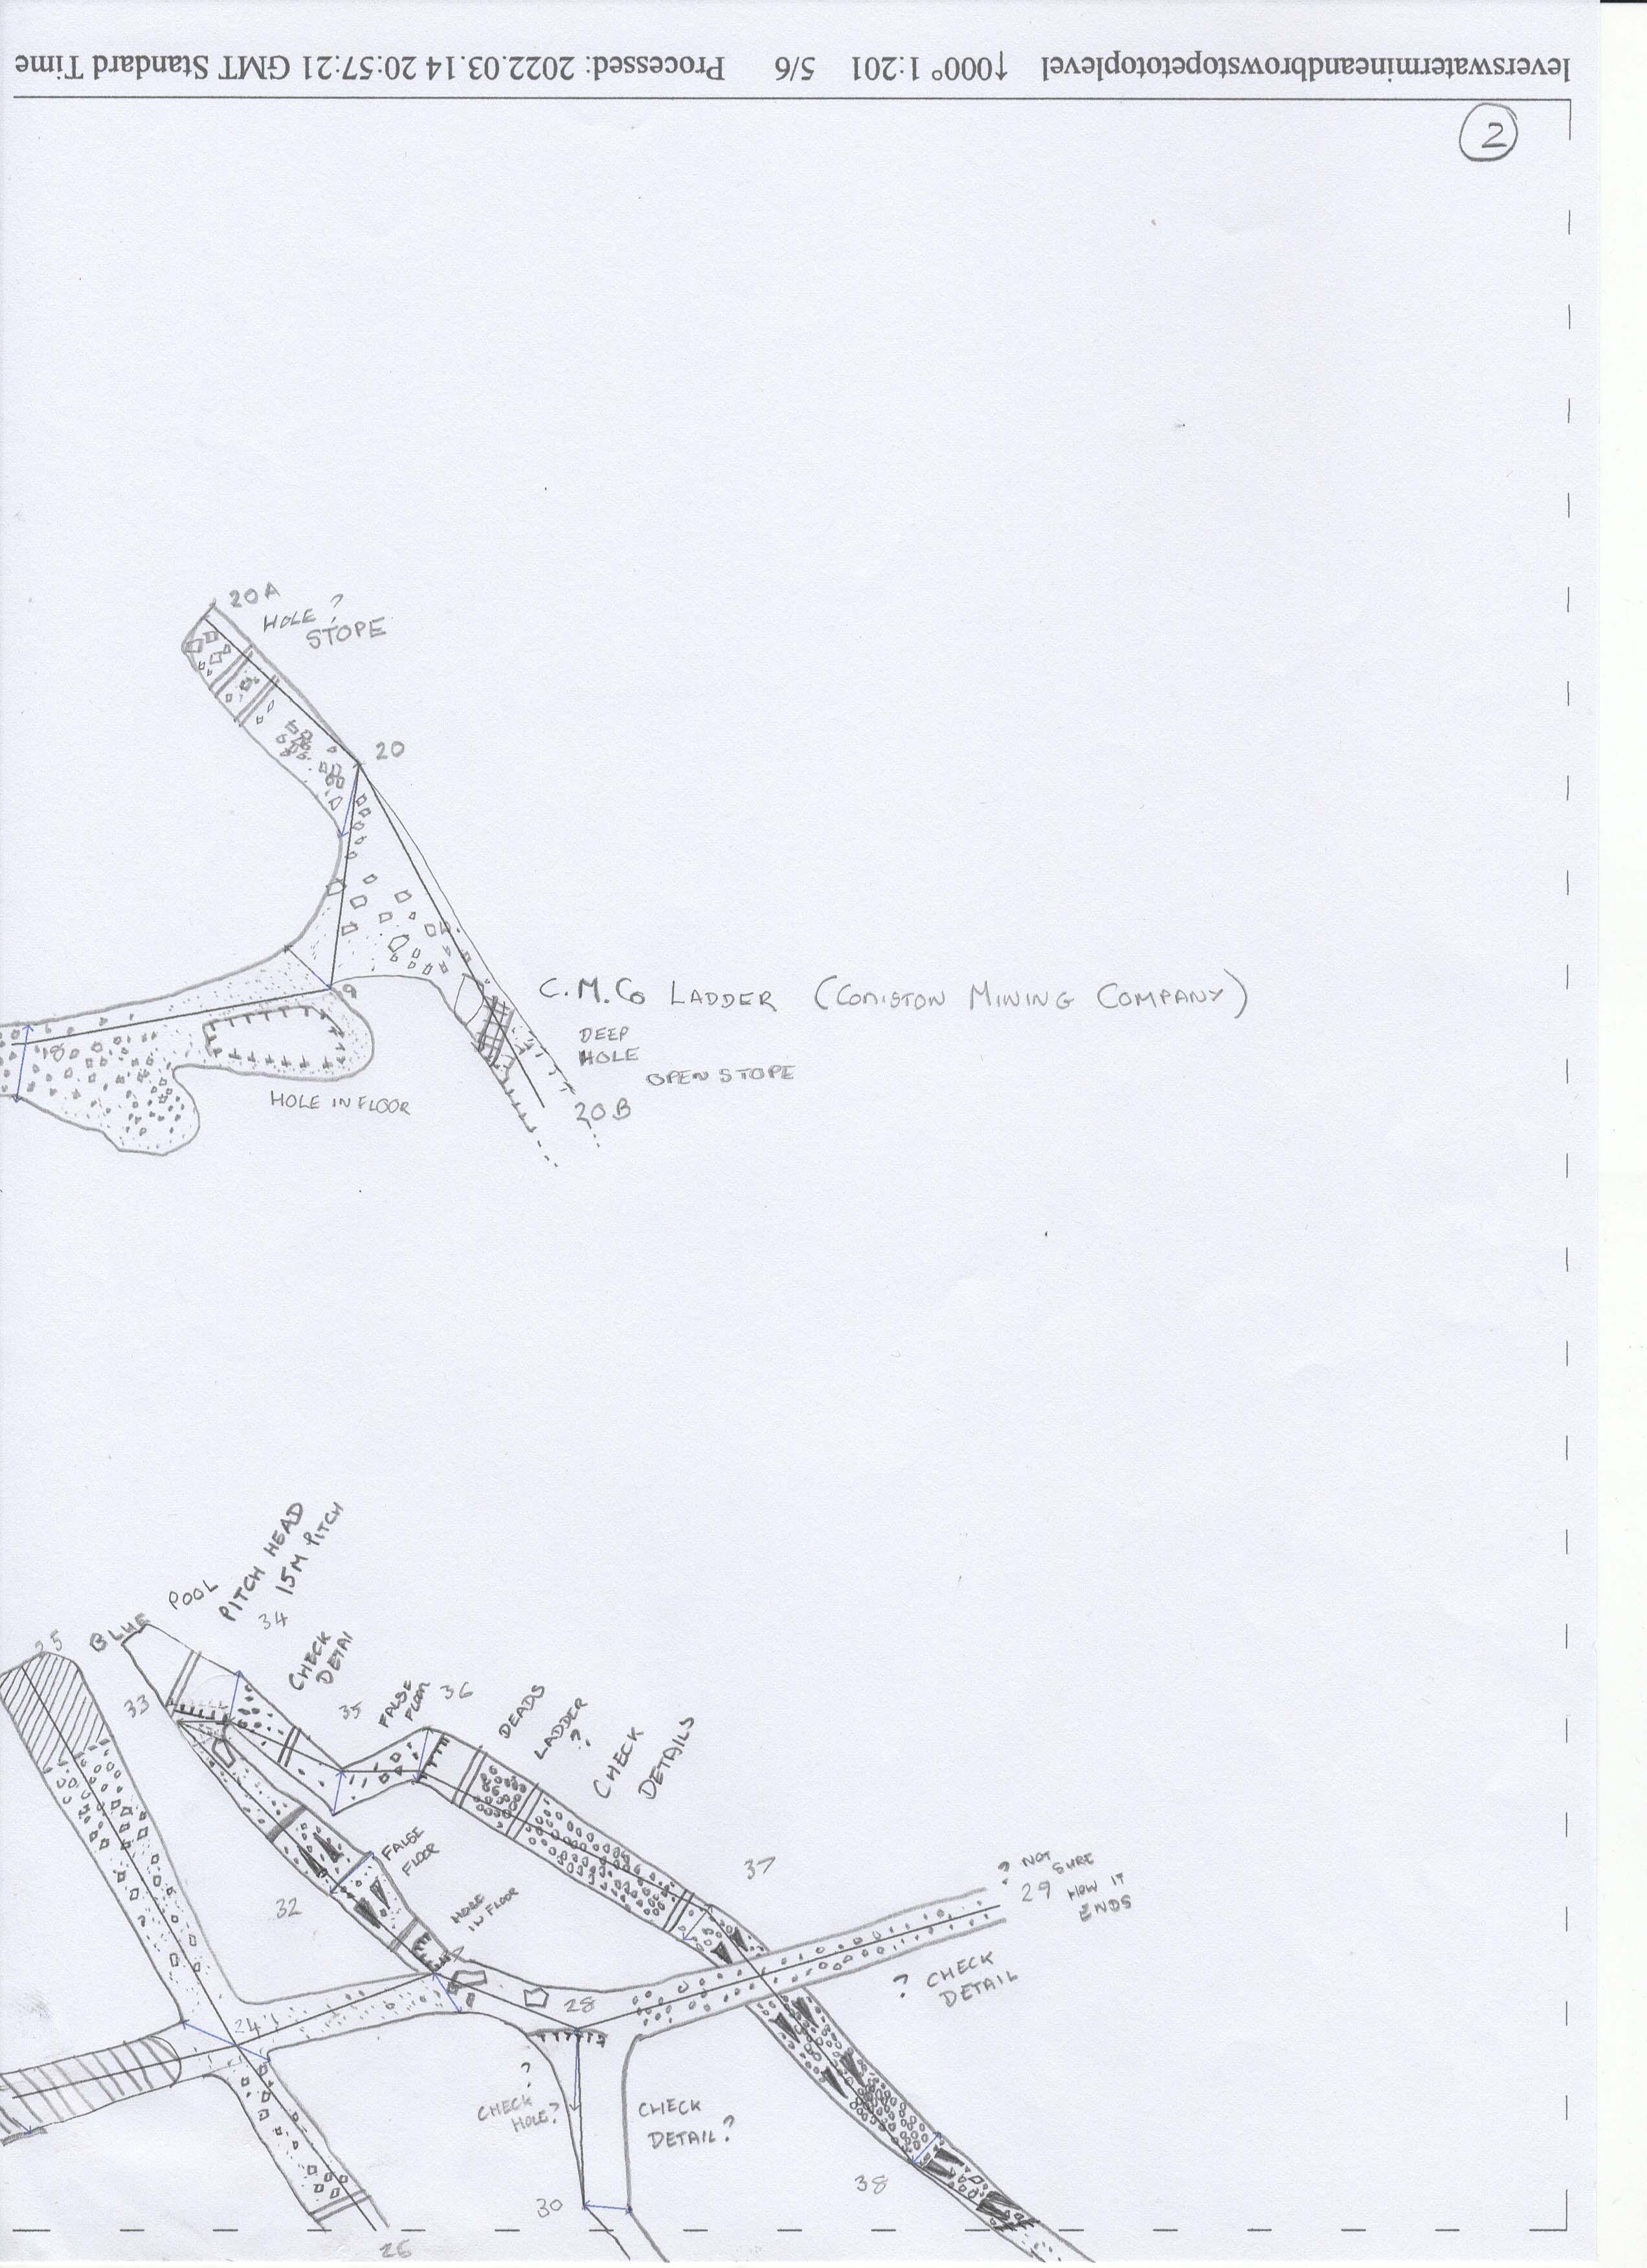 leverswatermineandbrowstopetotoplevel ↑000° 1:201 5/6 Processed: 2022.03.14 20:57:21 GMT Standard Time
2
20A
HOLE ?
STOPE
20
9
C.M.Co LADDER (CONISTON MINING COMPANY)
DEEP
HOLE
OPEN STOPE
18
20B
HOLE IN FLOOR
PITCH HEAD
15M PITCH
BLUE POOL
34
25
CHECK
DETAI
33
35
FALSE
FLOOR
36
DEADS
LADDER
?
CHECK
DETAILS
FALSE
FLOOR
32
HOLE
IN FLOOR
37
? NOT
SURE
29 HOW IT
ENDS
? CHECK
DETAIL
28
24
?
CHECK
HOLE?
CHECK
DETAIL?
38
30
26